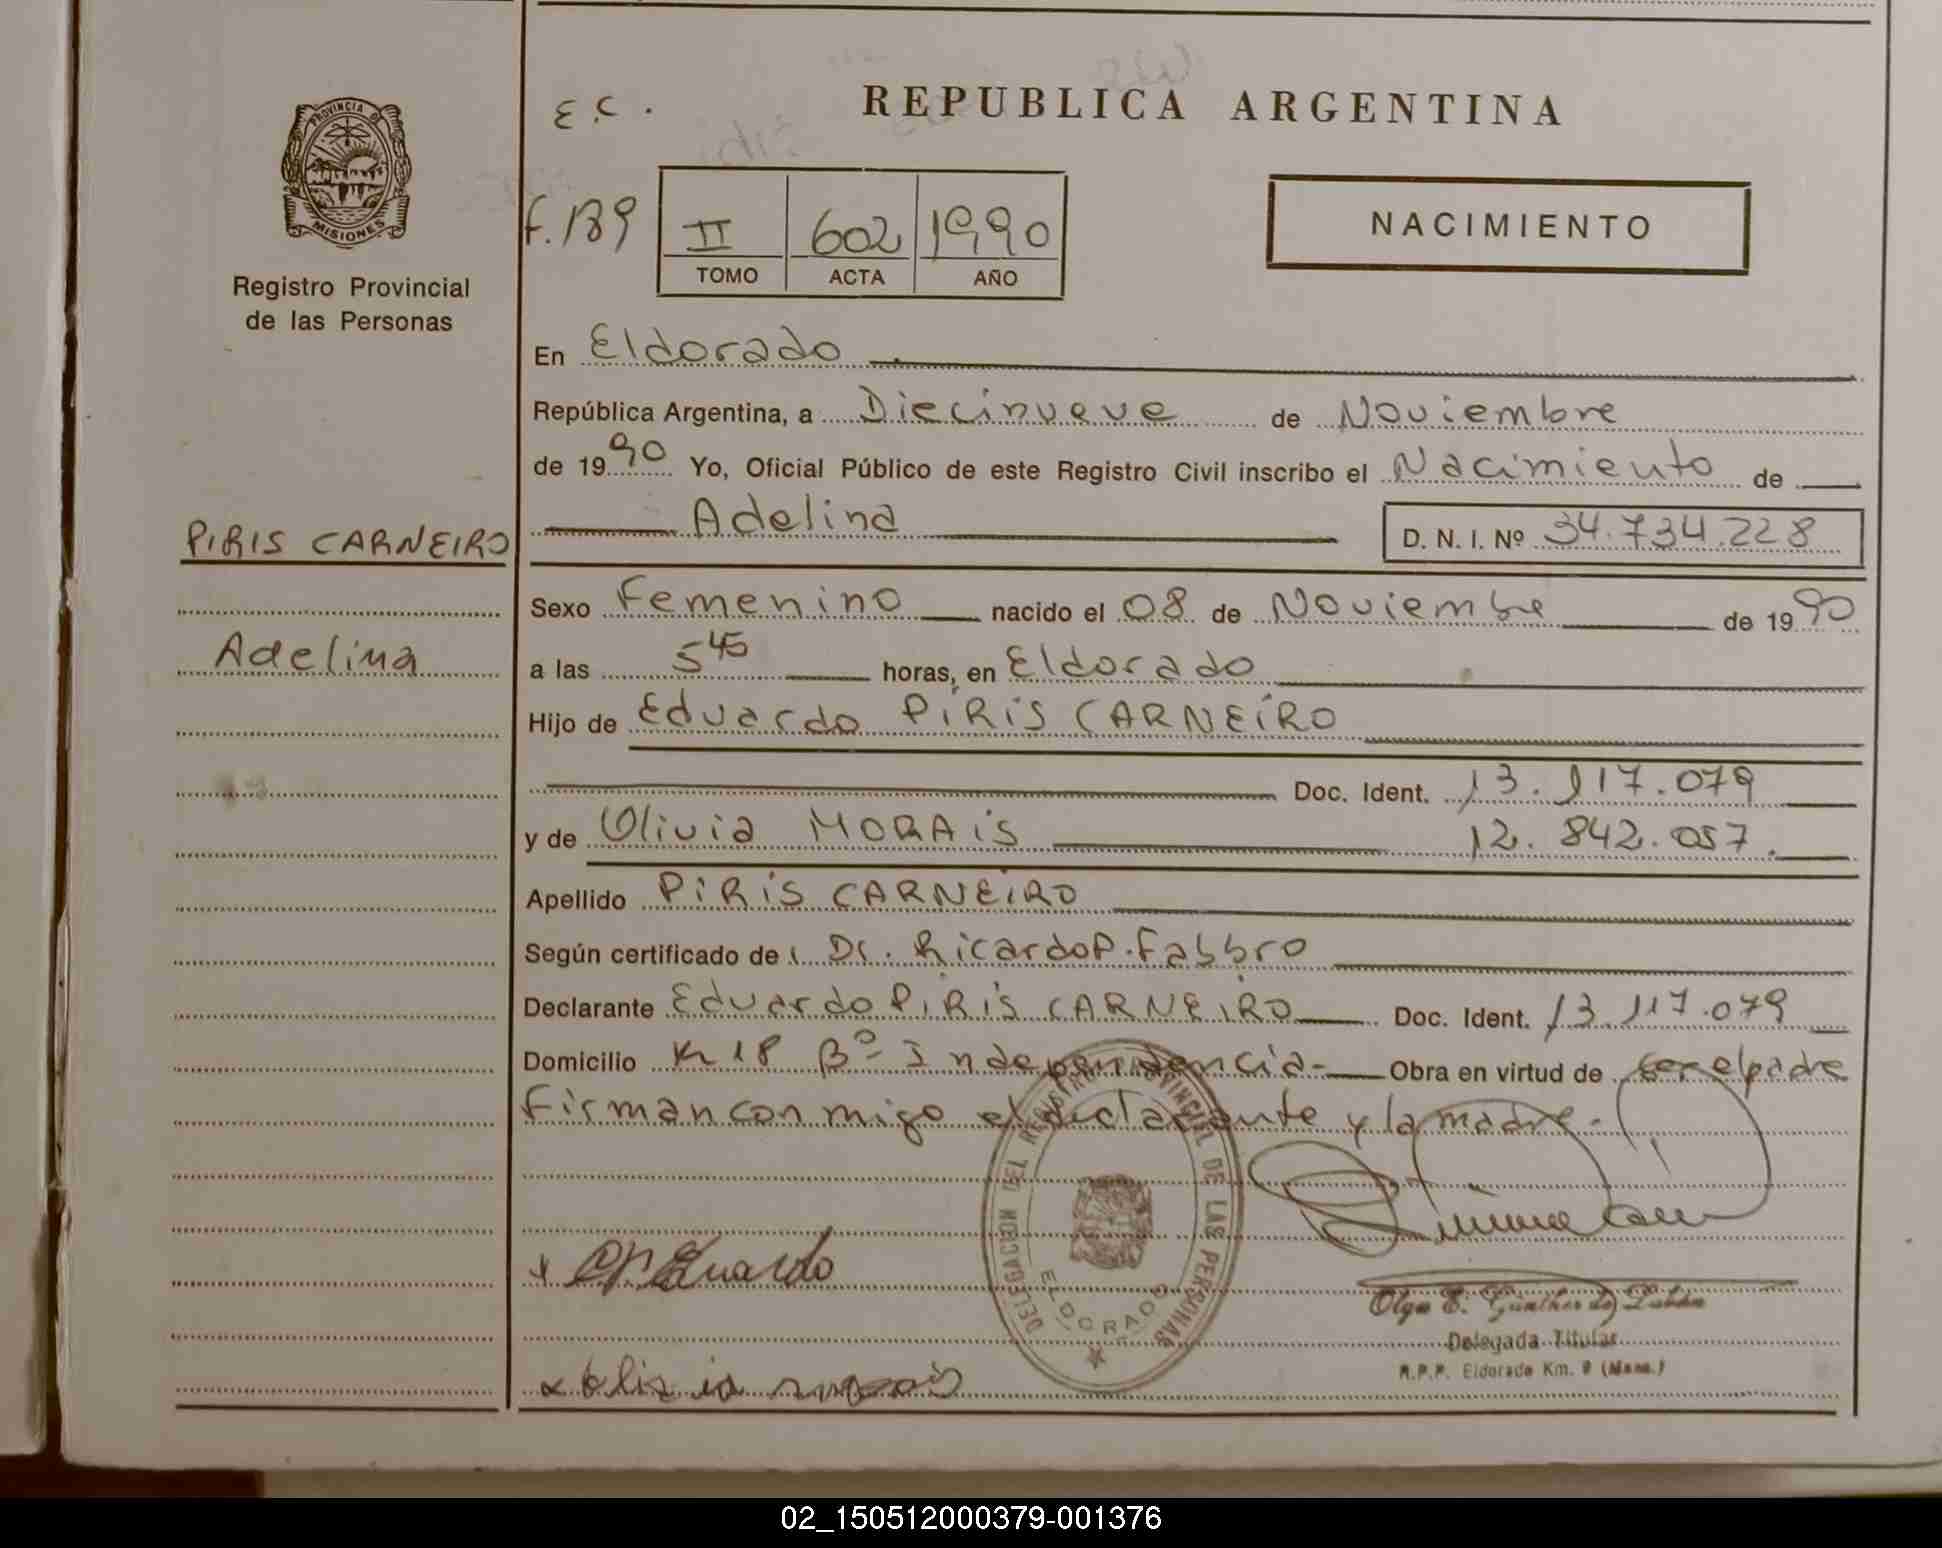 PROVINCIA DE
MISIONES
Registro Provincial
de las Personas
PIRIS CARNEIRO
Adelina
E.C.
REPUBLICA ARGENTINA
F.139
II 602 1990
TOMO ACTA AÑO
NACIMIENTO
En Eldorado
República Argentina, a Diecinueve de Noviembre
de 1990 Yo, Oficial Público de este Registro Civil inscribo el Nacimiento de
Adelina D. N. I. Nº 34.734.228
Sexo Femenino nacido el 08 de Noviembre de 1990
a las 5 45 horas, en Eldorado
Hijo de Eduardo PIRIS CARNEIRO
Doc. Ident. 13.117.079
y de Olivia MORAIS 12.842.057.
Apellido PIRIS CARNEIRO
Según certificado de Dr. Ricardo P. Fabbro
Declarante Eduardo PIRIS CARNEIRO Doc. Ident. 13.117.079
Domicilio Km 18 Bº- Independencia- Obra en virtud de ser el padre
Firman con migo el declarante y la madre.-
DELEGACION DEL REGISTRO PROVINCIAL DE LAS PERSONAS
ELDORADO
Olga E. Günther de
Delegada Titular
R.P.P. Eldorado Km. 9 (Mnes.)
02_150512000379-001376